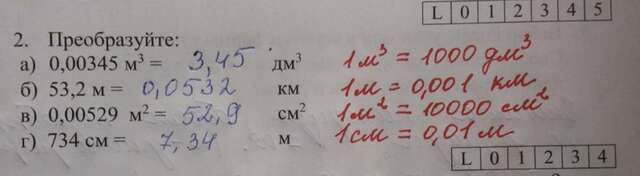 L 0 1 2 3 4 5
2. Преобразуйте:
а) 0,00345 м³ = 3,45 дм³ 1 м³ = 1000 дм³
б) 53,2 м = 0,0532 км 1 м = 0,001 км
в) 0,00529 м² = 52,9 см² 1 м² = 10000 см²
г) 734 см = 7,34 м 1 см = 0,01 м
L 0 1 2 3 4